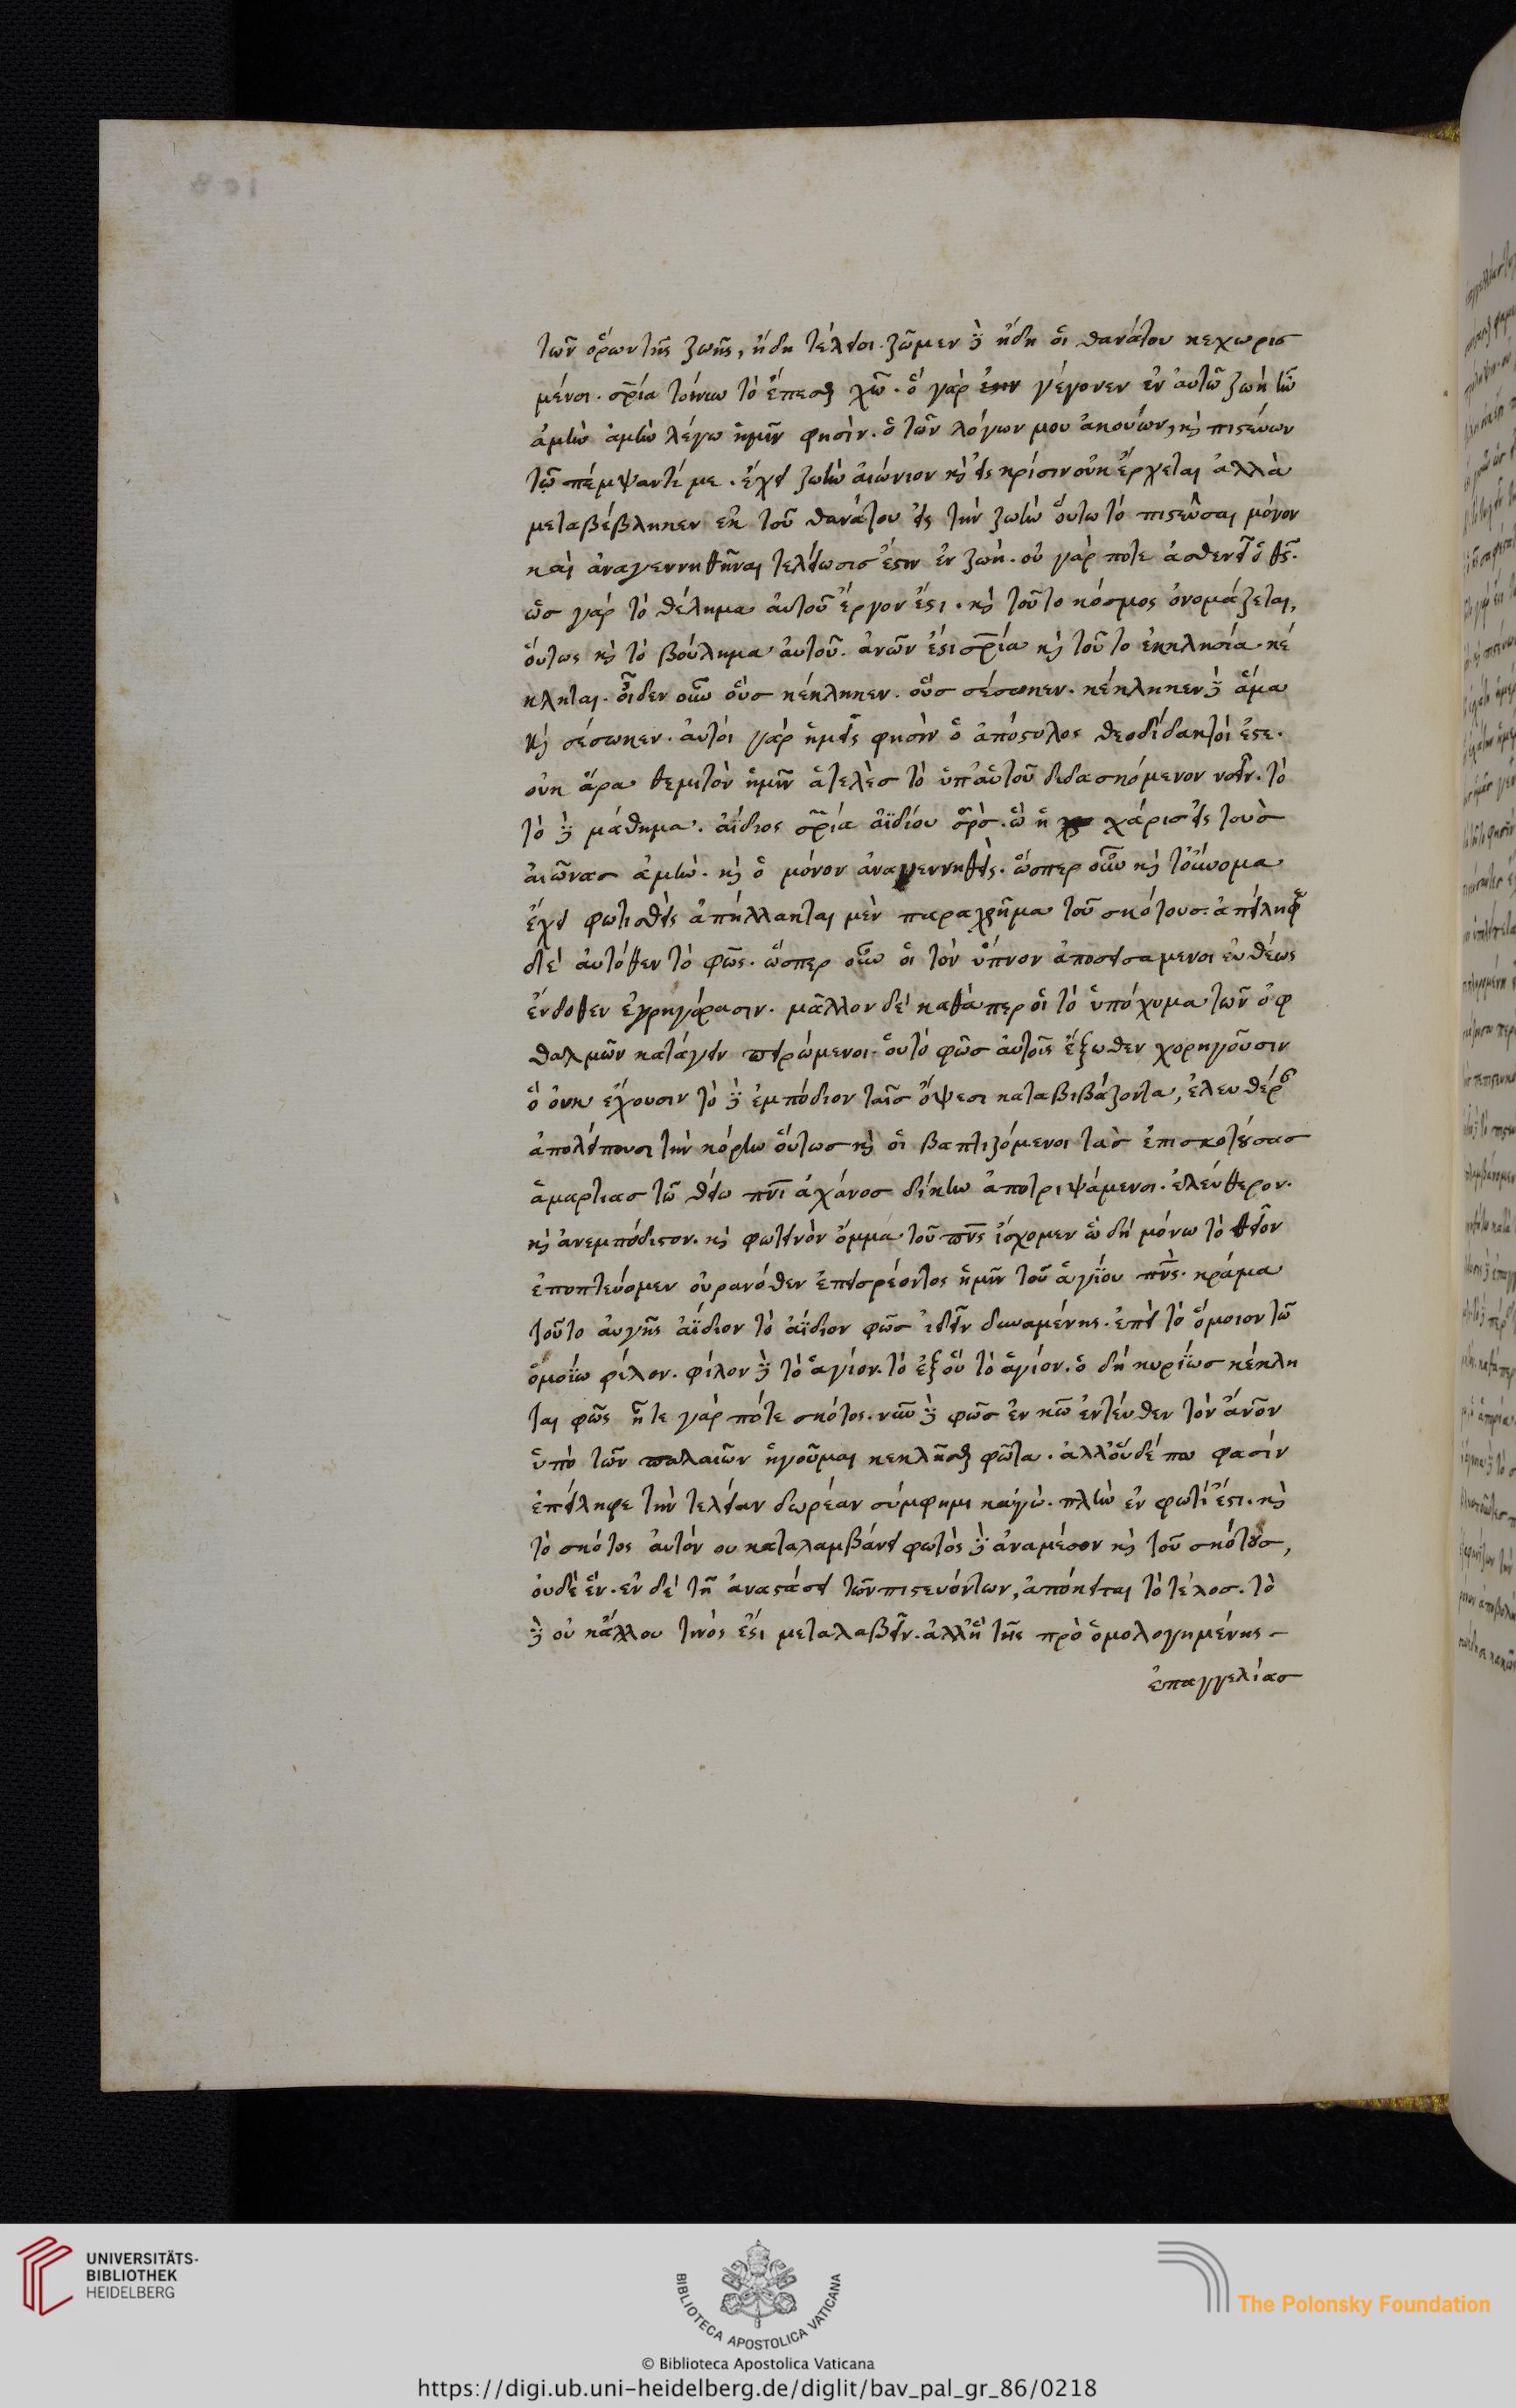 τῶν ὅρων τῆς ζωῆς, ἤδη τέλειοι. ζῶμεν δὲ ἤδη οἱ θανάτου κεχωρισ
μένοι. σρία τοίνυν τὸ ἕπεσθαι χῶ. ὃ γὰρ γέγονεν ἐν αὐτῶ ζωὴ ἦν
ἀμὴν ἀμὴν λέγω ὑμῖν φησὶν. ὁ τῶν λόγων μου ἀκούων, καὶ πιστεύων
τῶ πέμψαντί με. ἔχει ζωὴν αἰώνιον καὶ εἰς κρίσιν οὐκ ἔρχεται ἀλλὰ
μεταβέβληκεν ἐκ τοῦ θανάτου εἰς τὴν ζωὴν οὕτω τὸ πιστεῦσαι μόνον
καὶ ἀναγεννηθῆναι τελείωσισ ἐστιν ἐν ζωῆ. οὐ γάρ ποτε ἀσθενεῖ ὁ θς.
ὡσ γὰρ τὸ θέλημα αὐτοῦ ἔργον ἐστι. καὶ τοῦτο κόσμος ὀνομάζεται,
οὕτως καὶ τὸ βούλημα αὐτοῦ. ανων ἐστι σρία καὶ τοῦτο ἐκκλησία κέ
κληται. οἶδεν οὖν οὓσ κέκληκεν. οὓσ σέσωκεν. κέκληκεν δὲ ἅμα
καὶ σέσωκεν. αὐτοὶ γὰρ ὑμεῖς φησὶν ὁ ἀπόστολος θεοδίδακτοί ἐστε.
οὐκ ἄρα θεμιτὸν ἡμῖν ἀτελὲσ τὸ ὑπ' αὐτοῦ διδασκόμενον νοεῖν. τὸ
τὸ δὲ μάθημα. ἀΐδιος σρία ἀϊδίου σρσ. ὧ ἡ χάρισ εἰς τοὺσ
αἰῶνασ ἀμὴν. καὶ ὁ μόνον ἀναγεννηθεὶς. ὥσπερ οὖν καὶ τοὔνομα
ἔχει φωτισθεὶς ἀπήλλακται μὲν παραχρῆμα τοῦ σκότουσ. ἀπείληφε
δὲ αὐτόθεν τὸ φῶς. ὥσπερ οὖν οἱ τὸν ὕπνον ἀποσεισαμενοι εὐθέως
ἔνδοθεν ἐγρηγόρασιν. μᾶλλον δὲ καθάπερ οἱ τὸ ὑπόχυμα τῶν ὀφ
θαλμῶν κατάγειν πειρώμενοι. οὐ τὸ φῶσ αὐτοῖς ἔξωθεν χορηγοῦσιν
ὃ οὐκ ἔχουσιν τὸ δὲ ἐμπόδιον ταῖσ ὄψεσι καταβιβάζοντα, ἐλευθέραν
ἀπολείπουσι τὴν κόρην οὕτωσ καὶ οἱ βαπτιζόμενοι τὰσ ἐπισκοτούσασ
ἁμαρτιασ τῶ θείω πνι ἀχλύοσ δίκην ἀποτριψάμενοι. ἐλεύθερον.
καὶ ἀνεμπόδιστον. καὶ φωτεινὸν ὄμμα τοῦ πνς ἴσχομεν ὧ δὴ μόνω τὸ θεῖον
ἐποπτεύομεν οὐρανόθεν ἐπεισρέοντος ἡμῖν τοῦ ἁγίου πνς. κράμα
τοῦτο αὐγῆς ἀΐδιον τὸ ἀΐδιον φῶσ ἰδεῖν δυναμένης. ἐπεὶ τὸ ὅμοιον τῶ
ὁμοίω φίλον. φίλον δὲ τὸ ἅγιον. τὸ ἐξ οὗ τὸ ἅγιον. ὃ δὴ κυρίωσ κέκλη
ται φῶς ἦτε γάρ ποτε σκότος. νῦν δὲ φῶσ ἐν κῶ ἐντεῦθεν τὸν ανον
ὑπὸ τῶν παλαιῶν ἡγοῦμαι κεκλῆσθαι φῶτα. ἀλλ' οὐδέπω φασὶν
ἐπείληφε τὴν τελείαν δωρεάν σύμφημι καγώ. πλὴν ἐν φωτί ἐστι. καὶ
τὸ σκότος αὐτὸν ου καταλαμβάνει φωτὸς δὲ ἀναμέσον καὶ τοῦ σκότουσ,
οὐδὲ ἕν. ἐν δὲ τῆ ἀναστάσει τῶν πιστευόντων, ἀπόκειται τὸ τέλοσ. τὸ
δὲ οὐ κἄλλου τινός ἐστι μεταλαβεῖν. ἀλλ' ἢ τῆς προ ὁμολογημένης
ἐπαγγελίασ
UNIVERSITÄTS-
BIBLIOTHEK
HEIDELBERG
BIBLIOTECA APOSTOLICA VATICANA
The Polonsky Foundation
© Biblioteca Apostolica Vaticana
https://digi.ub.uni-heidelberg.de/diglit/bav_pal_gr_86/0218